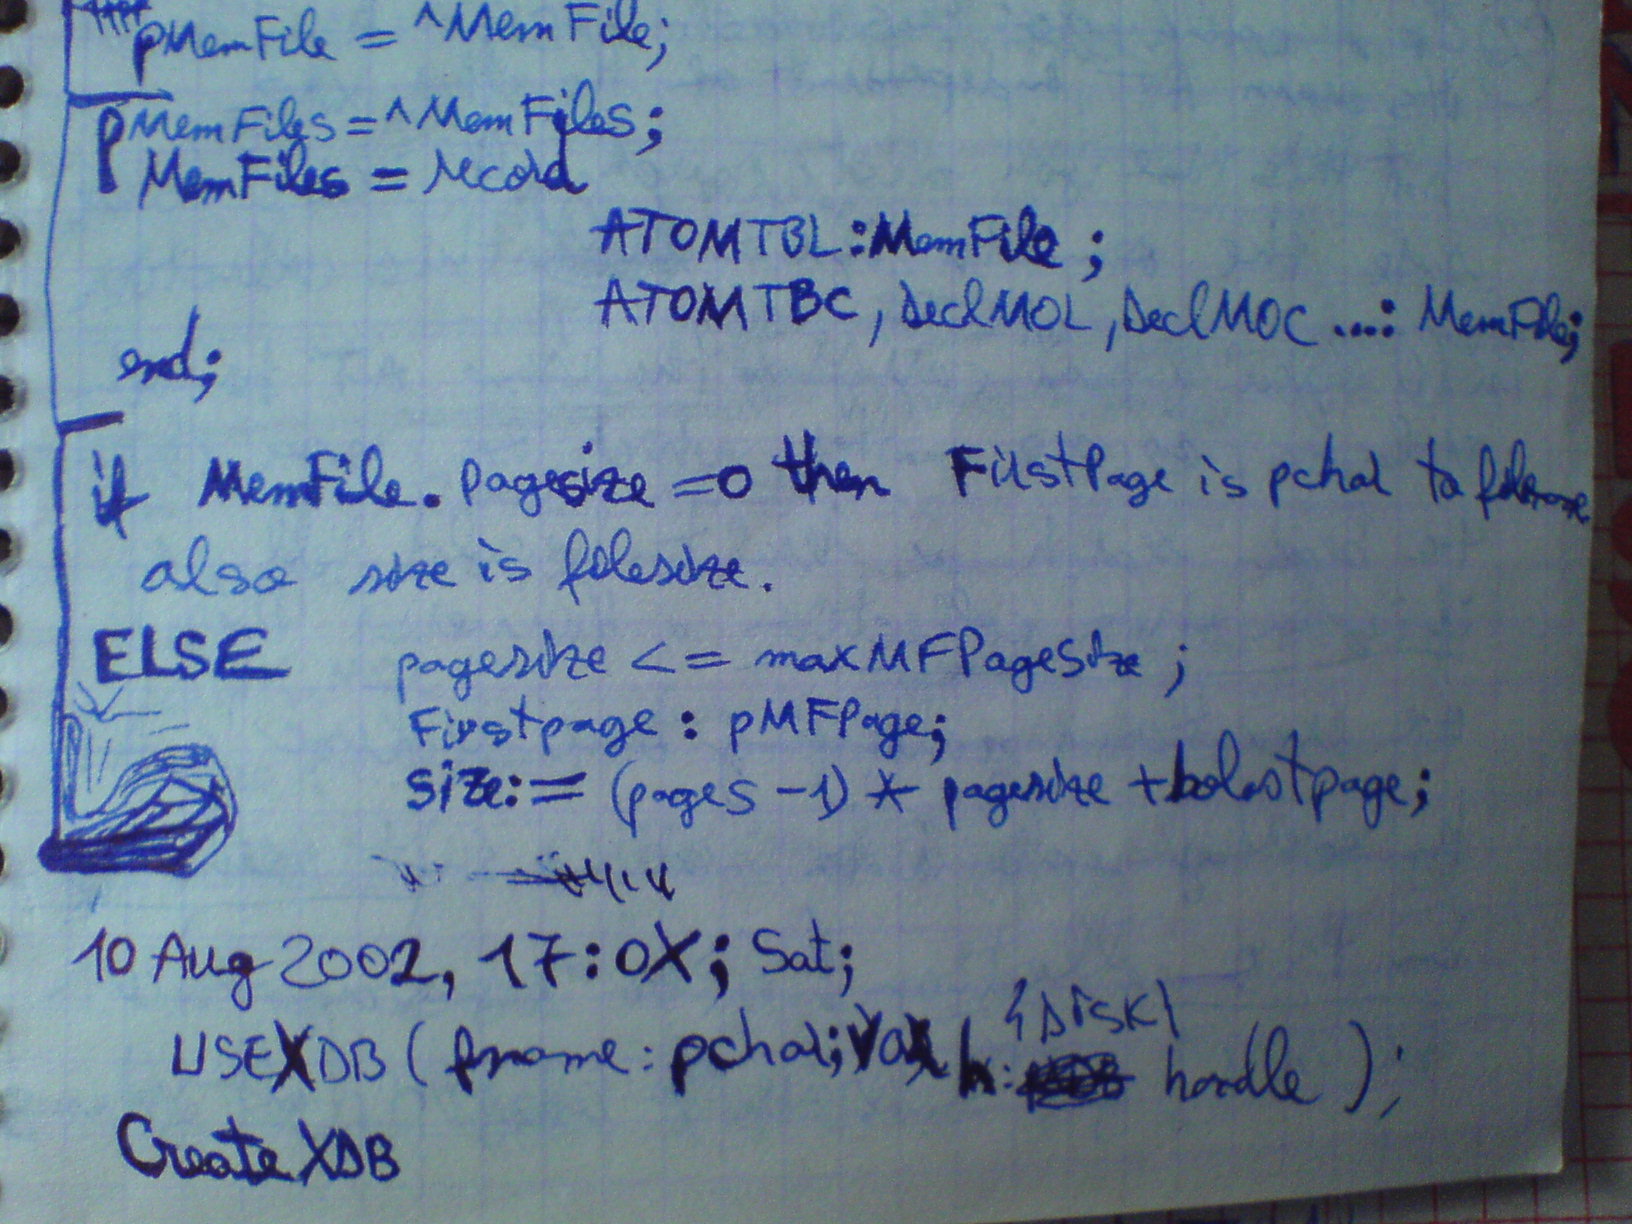 pMemFile = ^MemFile;
pMemFiles = ^MemFiles;
MemFiles = record
ATOMTBL : MemFile ;
ATOMTBC , DeclMOL , DeclMOC ...: MemFile;
end;
if MemFile. pagesize = 0 then FirstPage is pchar to filename
also size is filesize.
ELSE pagesize <= maxMFPageSize ;
Firstpage : pMFPage;
size:= (pages - 1) * pagesize + bolastpage;
10 Aug 2002, 17:0X; Sat;
{DISK}
USEXDB ( fname : pchar; var h: handle ) ;
Create XDB